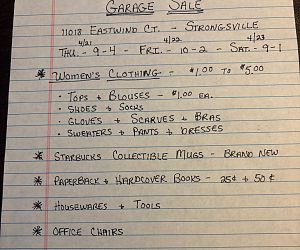 GARAGE SALE
11018 EASTWIND CT. - STRONGSVILLE
4/21 4/22 4/23
THU. - 9-4 - FRI. - 10-2 - SAT. - 9-1
* WOMEN'S CLOTHING - - $1.00 TO $5.00
• TOPS + BLOUSES - $1.00 EA.
• SHOES + SOCKS
• GLOVES + SCARVES + BRAS
• SWEATERS + PANTS + DRESSES
* STARBUCKS COLLECTIBLE MUGS - BRAND NEW
* PAPERBACK + HARDCOVER BOOKS - 25¢ + 50¢
* HOUSEWARES + TOOLS
* OFFICE CHAIRS